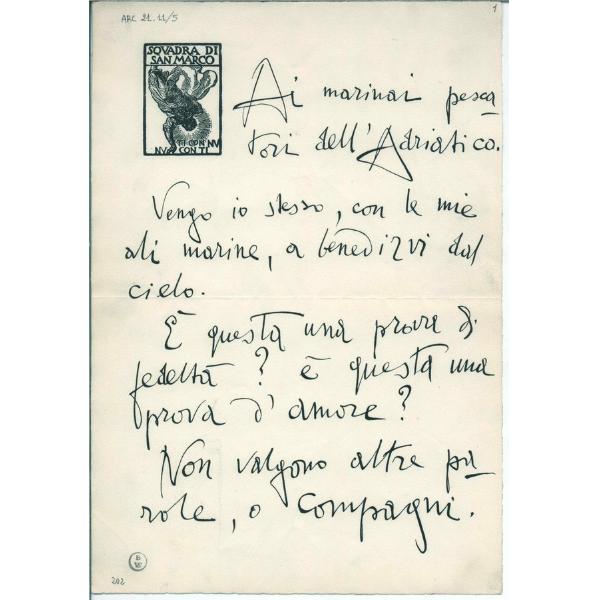 ARC 21.11/5
1
SQVADRA DI
SAN MARCO
TI CON NV
NVI CON TI
Ai marinai pesca
tori dell'Adriatico.
Vengo io stesso, con le mie
ali marine, a benedirvi dal
cielo.
È questa una prova di
fedeltà? è questa una
prova d'amore?
Non valgono altre pa
role, o compagni.
202